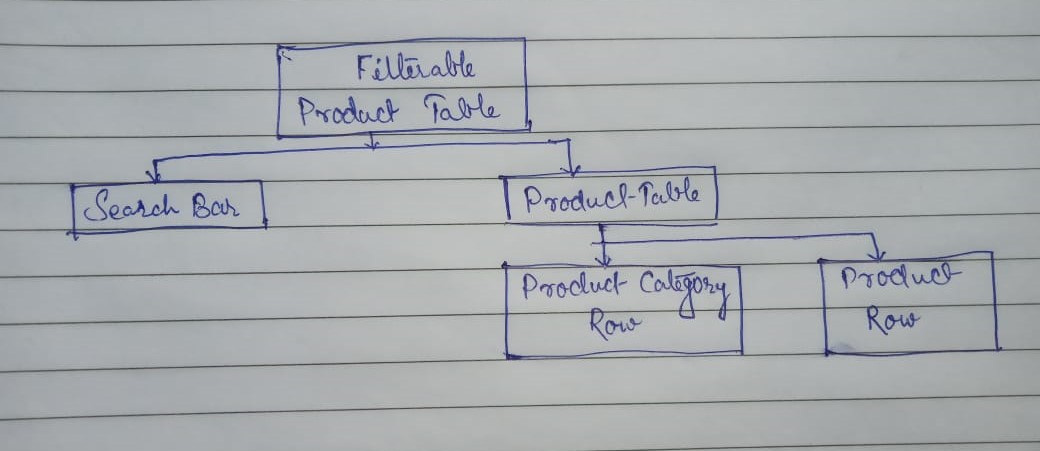 Filterable
Product Table
Search Bar
Product-Table
Product Category
Row
Product
Row